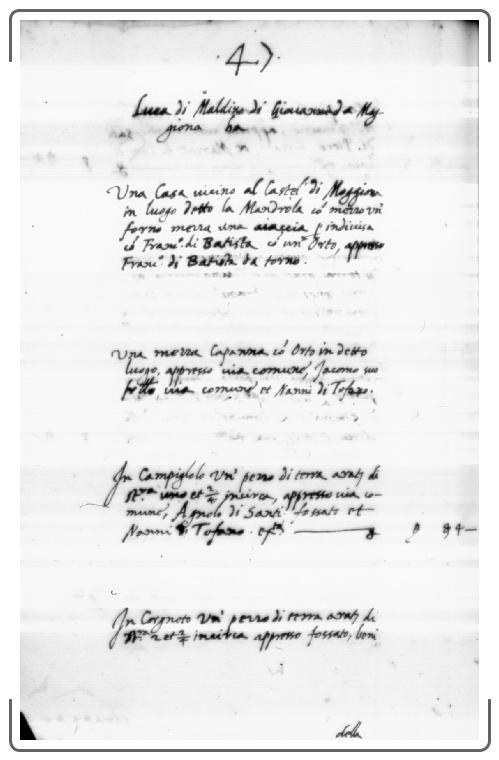 47.
Luca di Maldino di Giovanni da Mog-
giona ha
Una Casa vicino al Castel di Moggiona
in luogo detto la Mandrola cō mezzo un
forno mezza una aiaccia indivisa
cō Franc.o di Batista cō un Orto, appresso
Franc.o di Batista da torno.
Una mezza Capanna cō Orto in detto
luogo, appresso via comune, Jacomo suo
fratello via comune et Nanni di Tofano.
In Campiglolo Un pezzo di terra di
uno et incirca, appresso via co-
mune, Agnolo di Santi fossato et
Nanni di Tofano.
In Corgneto Un pezzo di terra di
2 et incirca appresso fossato, beni
della